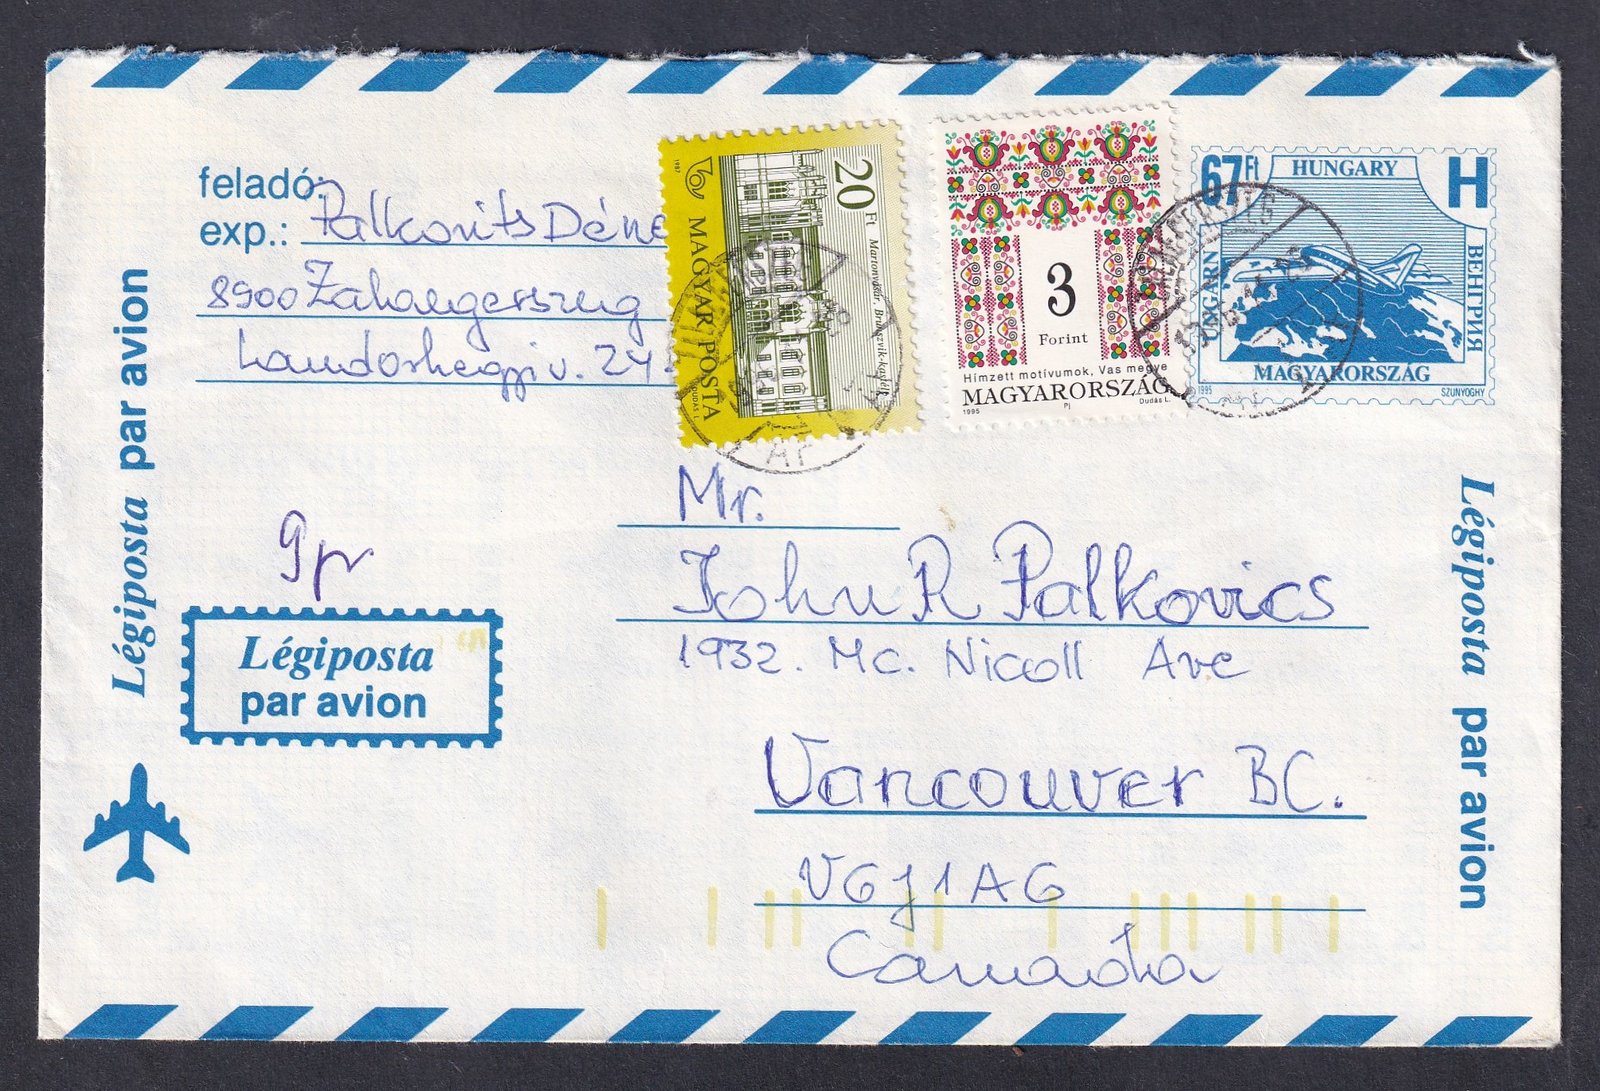 feladó:
exp.: Palkovits Déne
8900 Zalaegerszeg
Landorhegyi u. 24
Légiposta par avion
1987
20 Ft
MAGYAR POSTA
Martonvásár, Brunszvik-kastély
DUDÁS L.
3
Forint
Hímzett motívumok, Vas megye
MAGYARORSZÁG
1995
Pj
Dudás L.
67Ft
HUNGARY
H
UNGARN
ВЕНГРИЯ
MAGYARORSZÁG
1995
SZUNYOGHY
ZALAEGERSZEG
9 pr
Légiposta
par avion
Mr.
John R Palkovics
1932. Mc. Nicoll Ave
Vancouver BC.
V6J1A6
Canada
Légiposta par avion